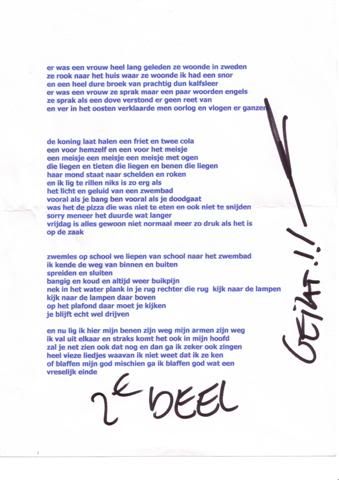 er was een vrouw heel lang geleden ze woonde in zweden
ze rook naar het huis waar ze woonde ik had een snor
en een heel dure broek van prachtig dun kalfsleer
er was een vrouw ze sprak maar een paar woorden engels
ze sprak als een dove verstond er geen reet van
en ver in het oosten verklaarde men oorlog en vlogen er ganzen
de koning laat halen een friet en twee cola
een voor hemzelf en een voor het meisje
een meisje een meisje een meisje met ogen
die liegen en tieten die liegen en benen die liegen
haar mond staat naar schelden en roken
en ik lig te rillen niks is zo erg als
het licht en geluid van een zwembad
vooral als je bang ben vooral als je doodgaat
was het de pizza die was niet te eten en ook niet te snijden
sorry meneer het duurde wat langer
vrijdag is alles gewoon niet normaal meer zo druk als het is
op de zaak
zwemles op school we liepen van school naar het zwembad
ik kende de weg van binnen en buiten
spreiden en sluiten
bangig en koud en altijd weer buikpijn
nek in het water plank in je rug rechter die rug kijk naar de lampen
kijk naar de lampen daar boven
op het plafond daar moet je kijken
je blijft echt wel drijven
en nu lig ik hier mijn benen zijn weg mijn armen zijn weg
ik val uit elkaar en straks komt het ook in mijn hoofd
zal je net zien ook dat nog en dan ga ik zeker ook zingen
heel vieze liedjes waavan ik niet weet dat ik ze ken
of blaffen mijn god mischien ga ik blaffen god wat een
vreselijk einde
2e DEEL